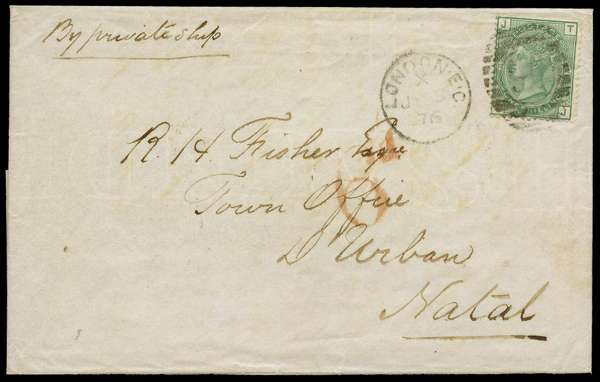 By private ship
J T
LONDON·E.C
X
J
76
J
R. H. Fisher Esqre
Town Office
D'Urban
Natal